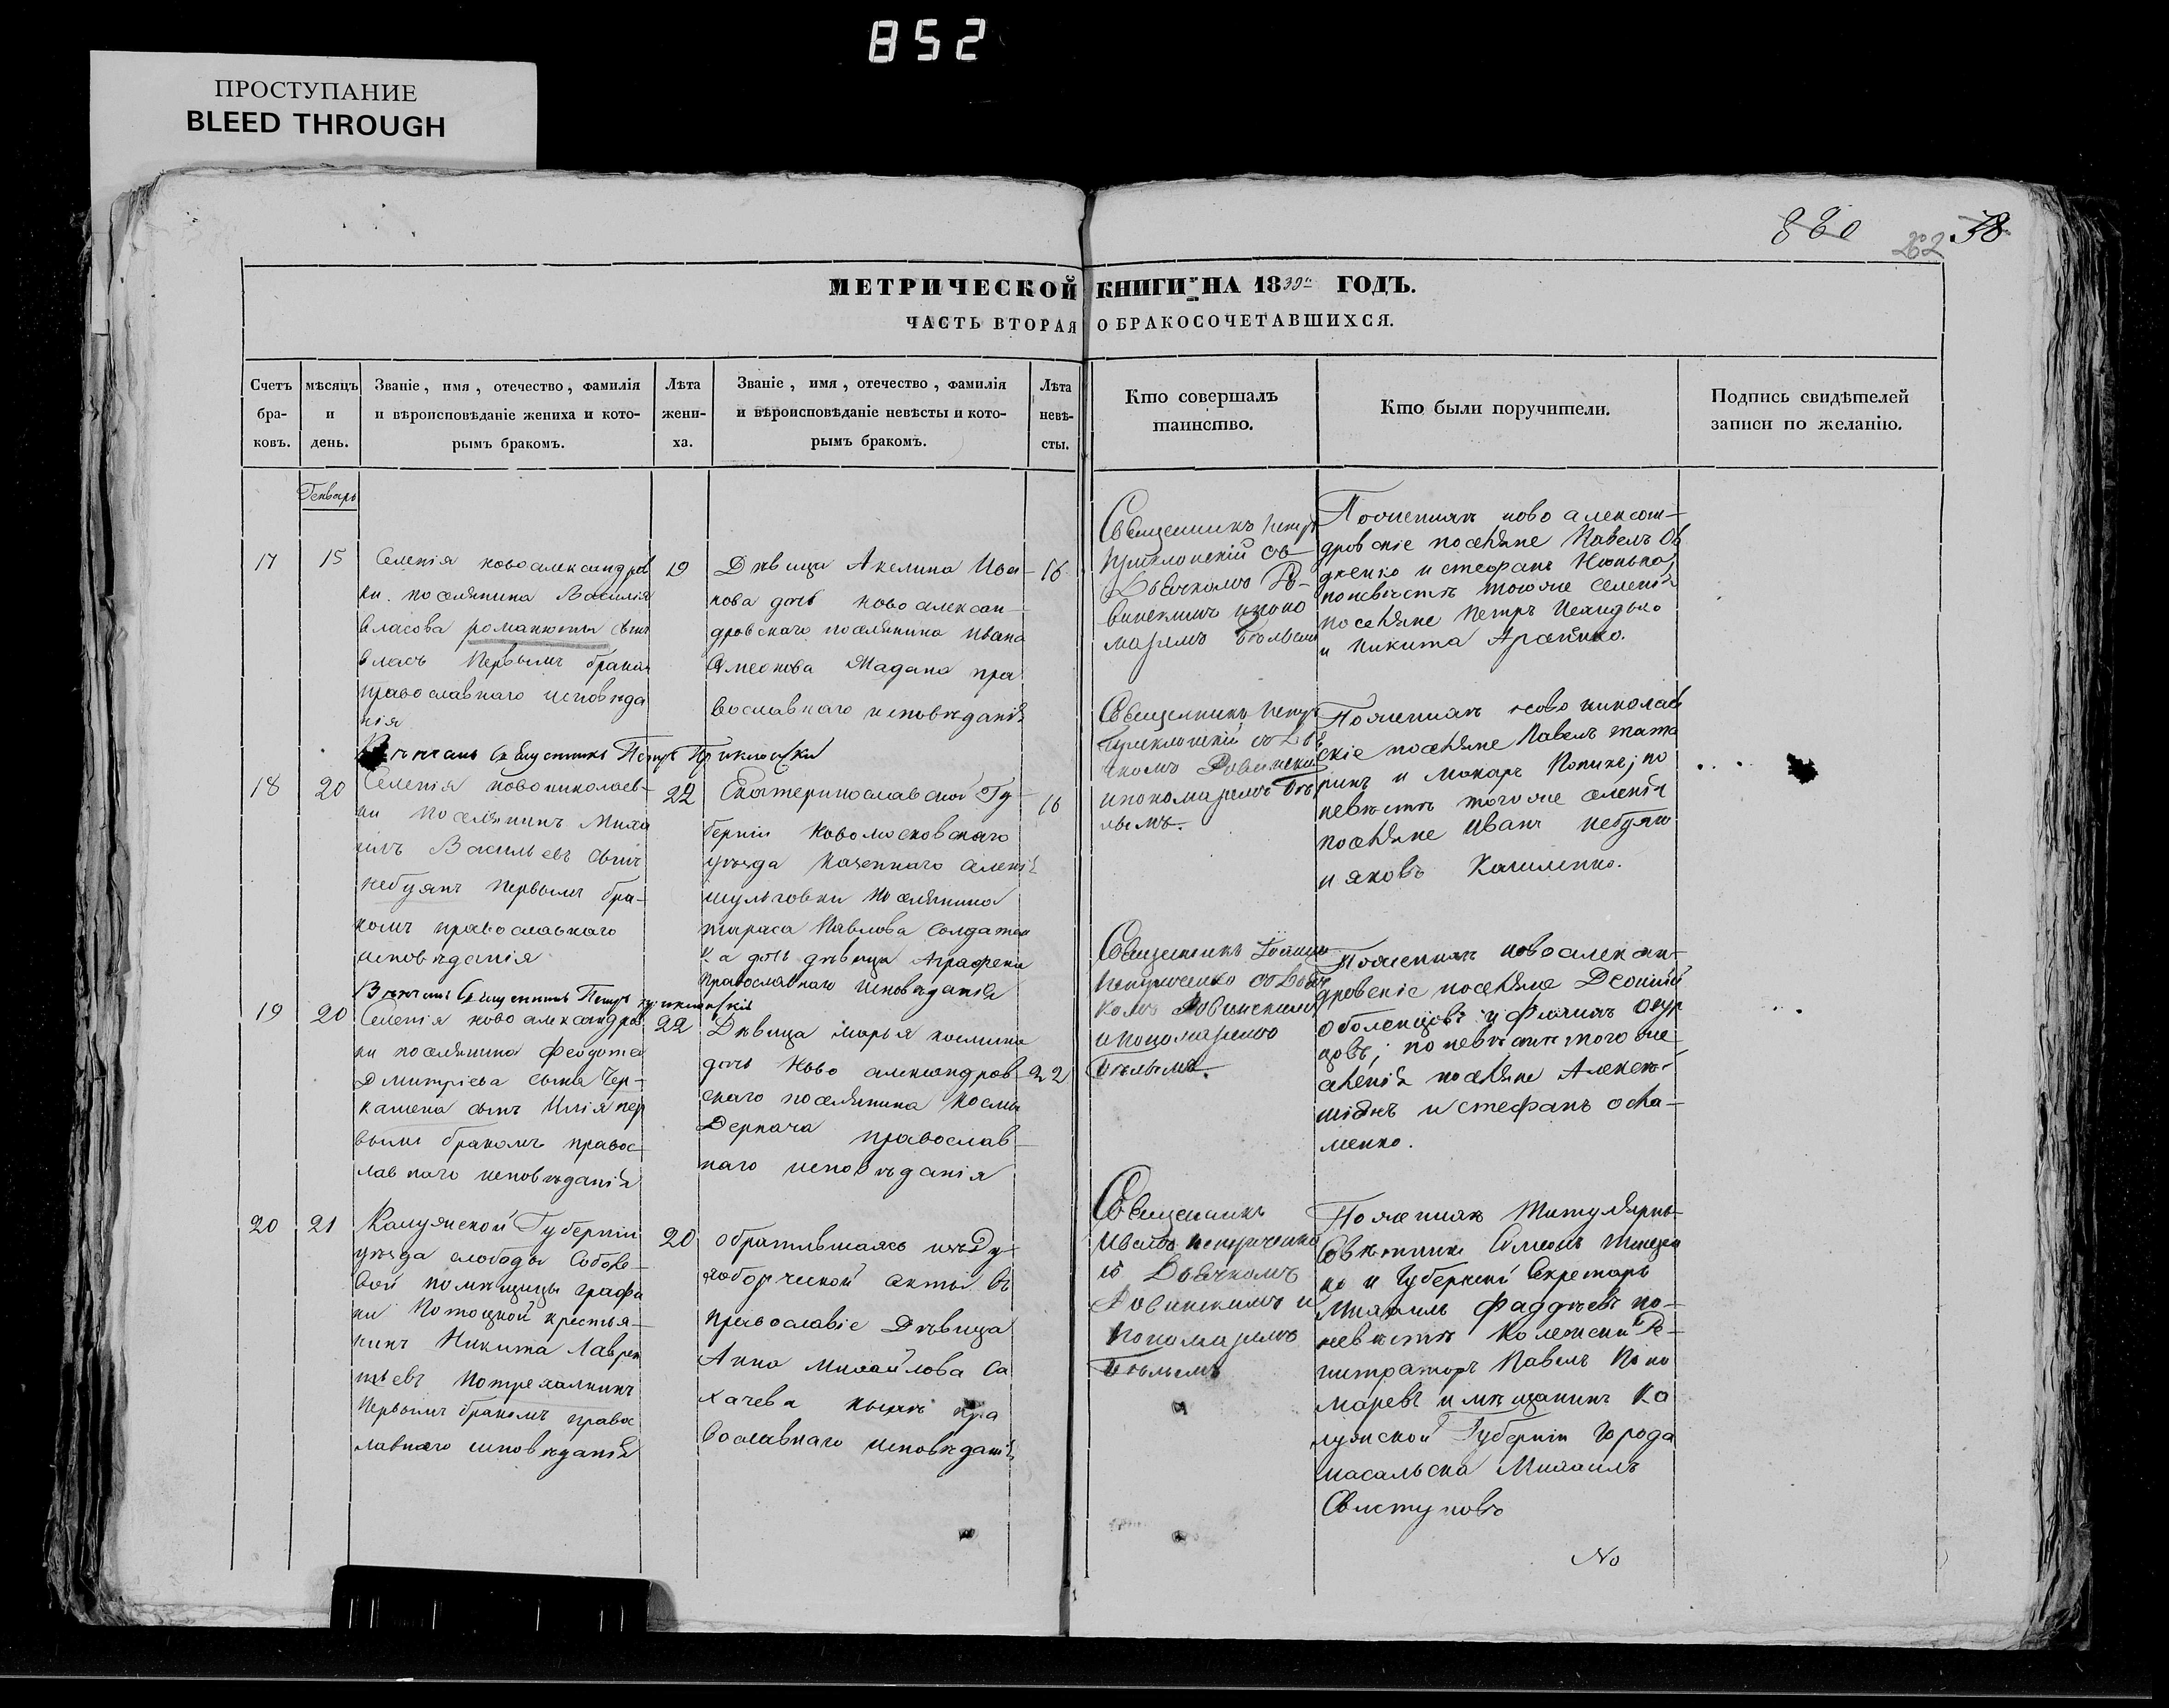 852
ПРОСТУПАНИЕ
BLEED THROUGH
880 202 38
МЕТРИЧЕСКОЙ КНИГИ НА 1839 ГОДЪ.
ЧАСТЬ ВТОРАЯ О БРАКОСОЧЕТАВШИХСЯ.
Счетъ
бра-
ковъ.
мѣсяцъ
и
день.
Званіе, имя, отечество, фамилія
и вѣроисповѣданіе жениха и кото-
рымъ бракомъ.
Лѣта
жени-
ха.
Званіе, имя, отечество, фамилія
и вѣроисповѣданіе невѣсты и кото-
рымъ бракомъ.
Лѣта
невѣ-
сты.
Кто совершалъ
таинство.
Кто были поручители.
Подпись свидѣтелей
записи по желанію.
Генварь
17
15
Селенія новоалександров
ки поселянина Василія
власова романюты сынъ
власъ первымъ бракомъ
православнаго исповѣда
нія
19
Дѣвица Акелина Ива-
нова дочь новоалексан-
дровскаго поселянина ивана
Симеонова Мадана пра
вославнаго исповѣданія
16
Священникъ петръ
приклонскій съ
Дьячкомъ Ро-
винскимъ и поно
маремъ Бѣлымъ
По женихѣ ново алексан-
дровскіе поселяне Павелъ
и стефанъ
по невѣстѣ тогоже селенія
поселяне петръ
и никита
Вѣнчалъ Священникъ Петръ Приклонскій
18
20
Селенія новониколаев-
ки поселянинъ Миха
илъ Васильевъ сынъ
небуянъ первымъ бра-
комъ православнаго
исповѣданія
22
Екатеринославской Гу-
берніи новомосковскаго
уѣзда казеннаго селенія
шульговки поселянина
тараса Павлова Солдатен
ка дочь дѣвица Аграфена
православнаго исповѣданія
16
Священникъ петръ
приклонскій съ Дья
чкомъ Ровинскимъ
и пономаремъ Бѣ
лымъ.
По женихѣ ново николаев
скіе поселяне Павелъ тата
ринъ и макаръ ; по
невѣстѣ тогоже селенія
поселяне иванъ небуян
и яковъ
Вѣнчалъ Священникъ Петръ Приклонскій
19
20
Селенія новоалександров
ки поселянина Феодота
Дмитріева сына Чер-
кашена сынъ Илія пер
вымъ бракомъ правос-
лавнаго исповѣданія
22
Дѣвица марья космина
дочь ново александров-
скаго поселянина космы
Деркача православ-
наго исповѣданія
22
Священникъ Іоаннъ
съ Дьяч
комъ Ровинскимъ
и пономаремъ
Бѣлымъ.
По женихѣ новоалексан-
дровскіе поселяне
оболенцовъ и огур
цовъ; по невѣстѣ тогоже
селенія поселяне Алексѣй
и стефанъ
менко.
20
21
Калужской Губерніи
уѣзда слободы
помѣщицы графи
ни Потоцкой крестья-
нинъ Никита Лаврен
тьевъ
первымъ бракомъ правос
лавнаго исповѣданія
20
обратившаяся изъ Ду-
хоборческой секты въ
православіе Дѣвица
Анна Михайлова Са
хачева нынѣ пра
вославнаго исповѣданія
Священникъ
Иванъ
съ Дьячкомъ
Ровинскимъ и
пономаремъ
Бѣлымъ
По женихѣ Титулярный
Совѣтникъ Симеонъ
и Губернскій Секретарь
Михаилъ Фаддѣевъ по-
невѣстѣ Колежскій Ре-
гистраторъ Павелъ Поно
маревъ и мѣщанинъ Ка
лужской Губерніи города
масальска Михаилъ
Свистуновъ
No